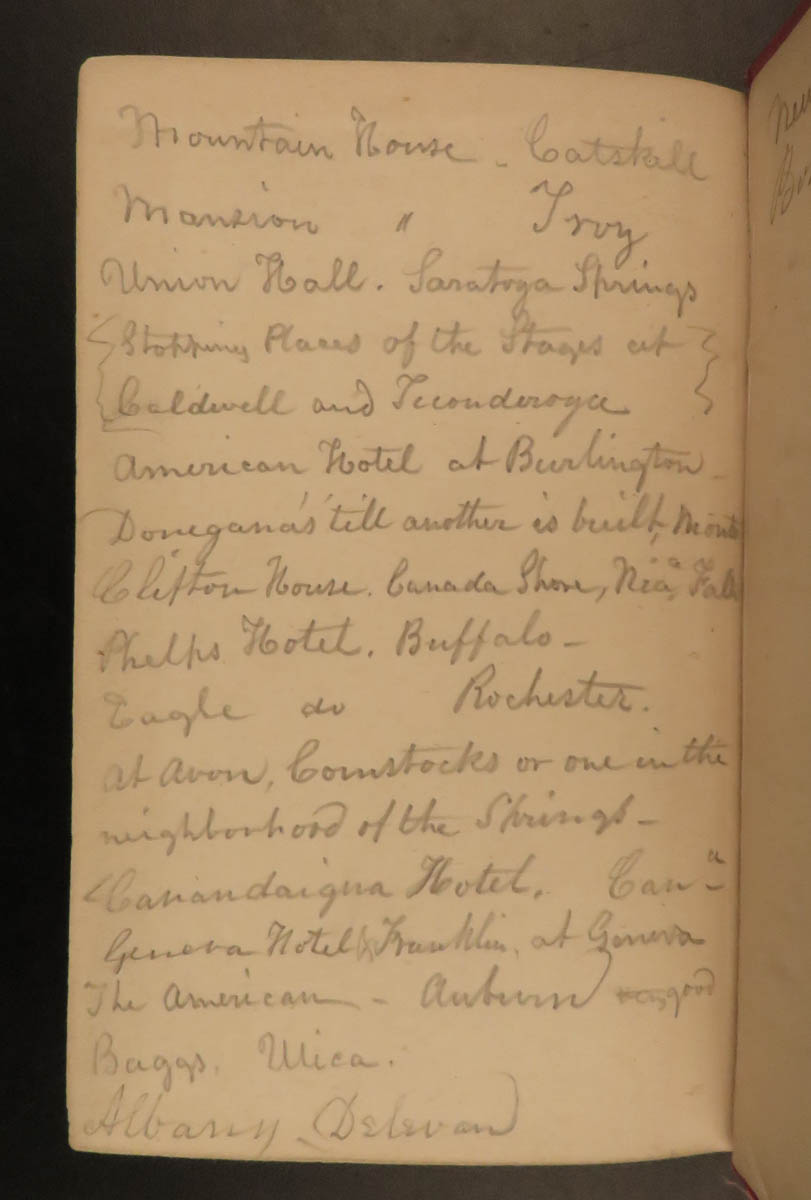 Mountain House - Catskill
Mansion " Troy
Union Hall. Saratoga Springs
Stopping Places of the Stages at
Caldwell and Ticonderoga
American Hotel at Burlington -
Donegana's till another is built, Mont
Clifton House. Canada Shore, Nia.a Falls
Phelps Hotel. Buffalo -
Eagle do Rochester.
At Avon, Comstocks or one in the
neighborhood of the Springs -
Canandaigua Hotel. Can-a
Geneva Hotel & Franklin, at Geneva
The American - Auburn good
Baggs. Utica.
Albany - Delevan